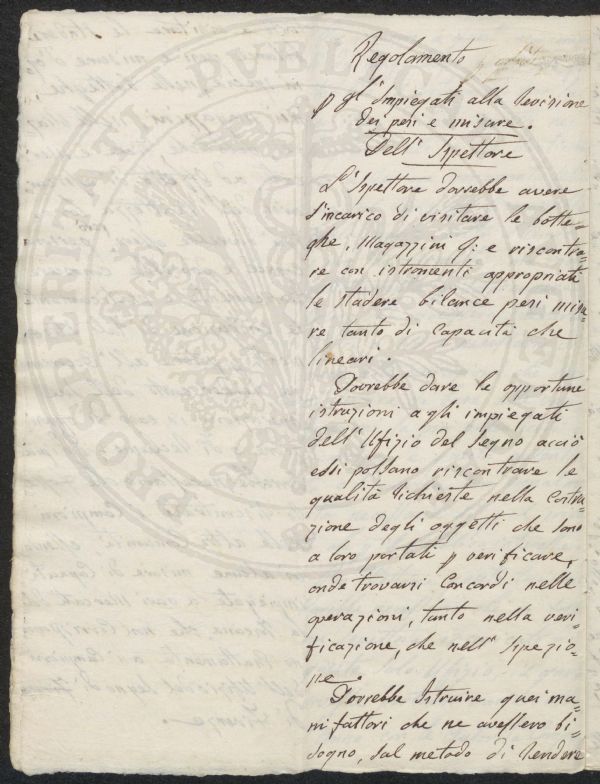 Regolamento
p gl'Impiegati alla Revisione
dei pesi e misure.
Dell' Ispettore
L'Ispettore dovrebbe avere
l'incarico di visitare le botte=
ghe, Magazzini &: e riscontra=
re con istromenti appropriati
le stadere bilance pesi misu
re tanto di capacità che
lineari.
Dovrebbe dare le opportune
istruzioni agli impiegati
dell'Ufizio del Segno acciò
essi possano riscontrare le
qualità richieste nella costru=
zione degli oggetti che sono
a loro portati p verificare,
onde trovarsi concordi nelle
operazioni, tanto nella veri=
ficazione, che nell' Ispezio=
ne.
Dovrebbe Istruire quei ma=
nifattori che ne avessero bi=
sogno, sul metodo di rendere
PROSPERITATI PUBLI